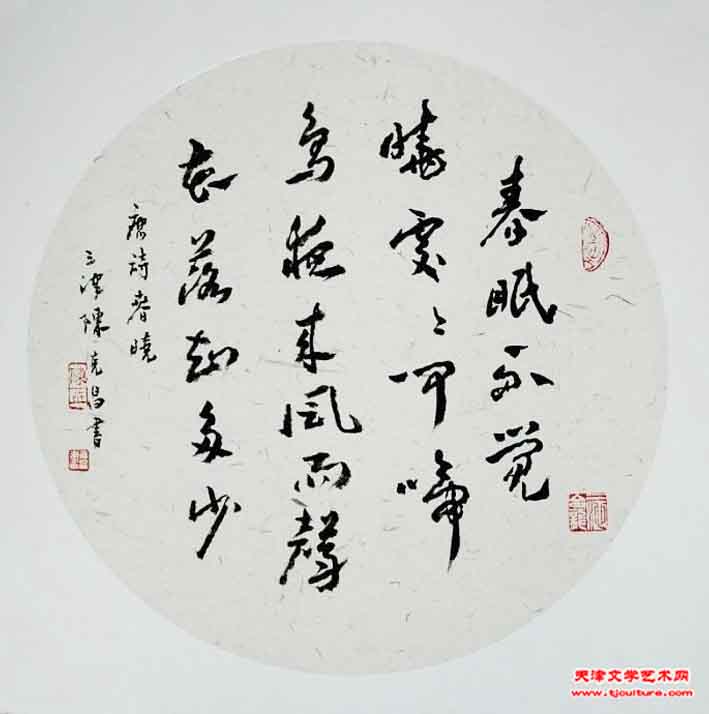 春眠不觉
晓处々闻啼
鸟夜来风雨声
花落知多少
唐诗春晓
三津陈克昌书
天津文学艺术网
www.tjculture.com